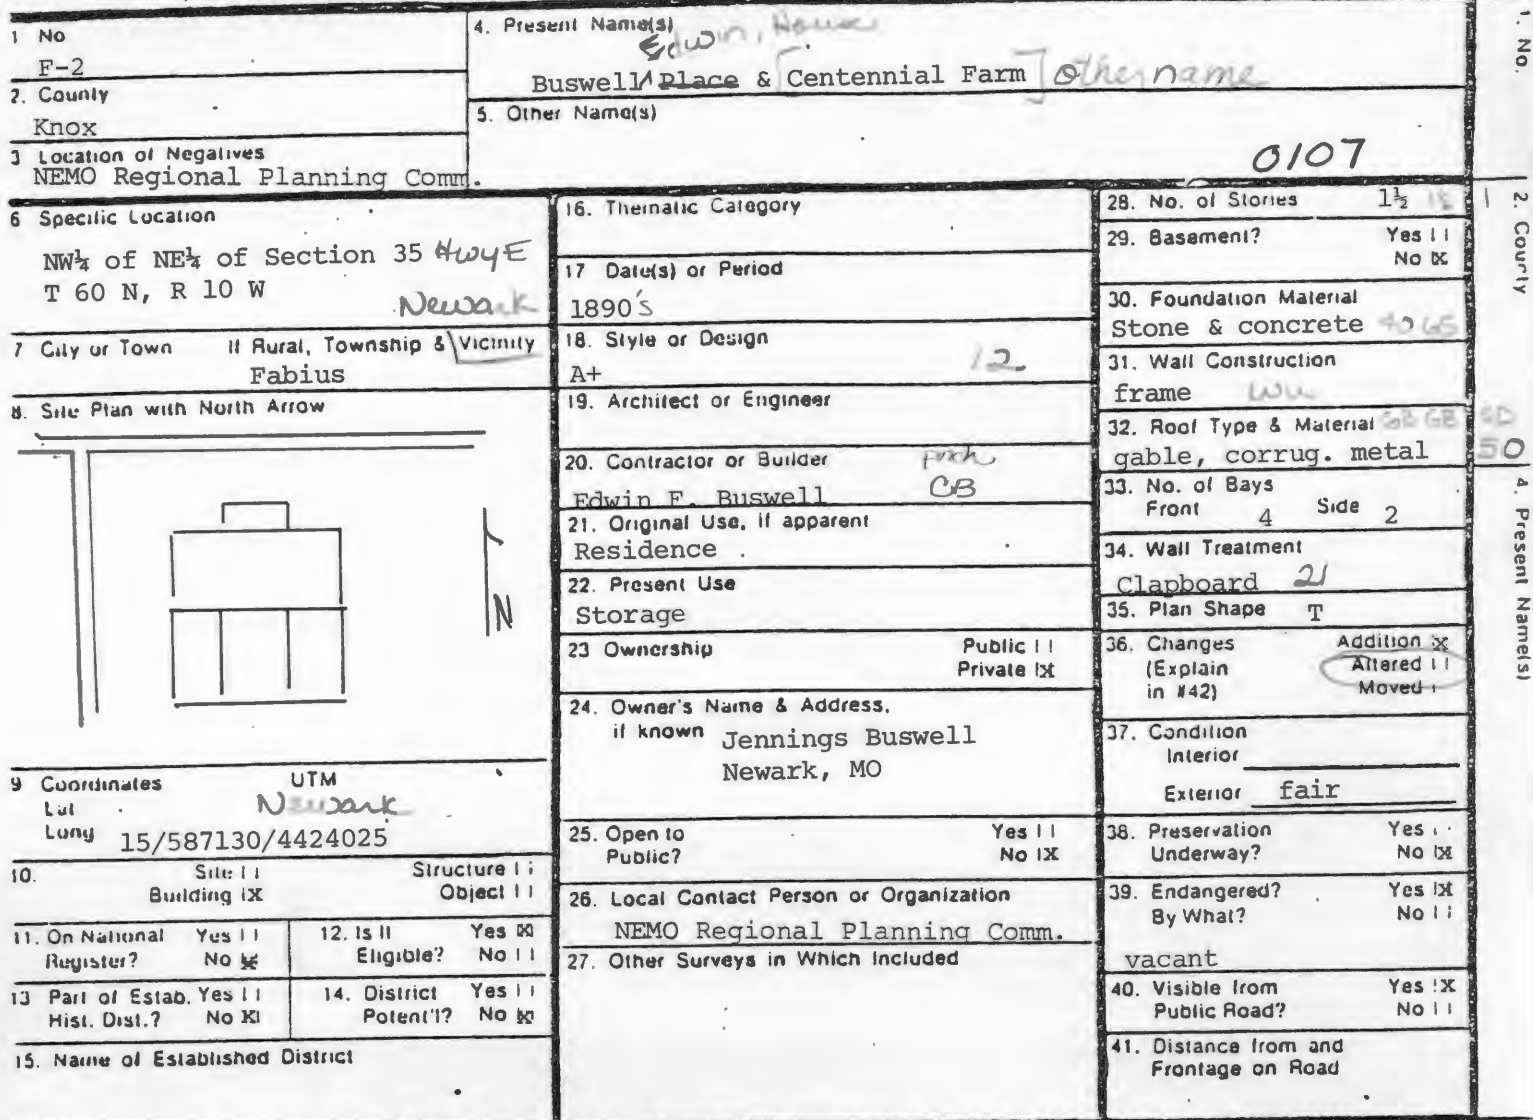 1 No
F-2
2. County
Knox
3 Location of Negatives
NEMO Regional Planning Comm.
4. Present Name(s)
Edwin, House
Buswell ^ Place & [Centennial Farm] other name
5. Other Name(s)
0107
6 Specific Location
NW¼ of NE¼ of Section 35 Hwy E
T 60 N, R 10 W
Newark
7 City or Town If Rural, Township & Vicinity
Fabius
8. Site Plan with North Arrow
N
9 Coordinates UTM
Lat Newark
Long 15/587130/4424025
10. Site | | Structure | |
Building |X Object | |
11. On National Yes | |
Register? No |X
12. Is It Yes |X|
Eligible? No | |
13 Part of Estab. Yes | |
Hist. Dist.? No |X|
14. District Yes | |
Potent'l? No |X|
15. Name of Established District
16. Thematic Category
17 Date(s) or Period
1890's
18. Style or Design 12
A+
19. Architect or Engineer
20. Contractor or Builder porch
Edwin F. Buswell CB
21. Original Use, if apparent
Residence
22. Present Use
Storage
23 Ownership Public | |
Private |X
24. Owner's Name & Address,
if known Jennings Buswell
Newark, MO
25. Open to Yes | |
Public? No |X
26. Local Contact Person or Organization
NEMO Regional Planning Comm.
27. Other Surveys in Which Included
28. No. of Stories 1½
29. Basement? Yes | |
No |X
30. Foundation Material
Stone & concrete 40 65
31. Wall Construction
frame
32. Roof Type & Material GB GB SD
gable, corrug. metal 50
33. No. of Bays
Front 4 Side 2
34. Wall Treatment
Clapboard 21
35. Plan Shape T
36. Changes Addition |X
(Explain Altered | |
in #42) Moved |
37. Condition
Interior
Exterior fair
38. Preservation Yes
Underway? No |X
39. Endangered? Yes |X
By What? No | |
vacant
40. Visible from Yes |X
Public Road? No | |
41. Distance from and
Frontage on Road
1. No.
2. County
4. Present Name(s)